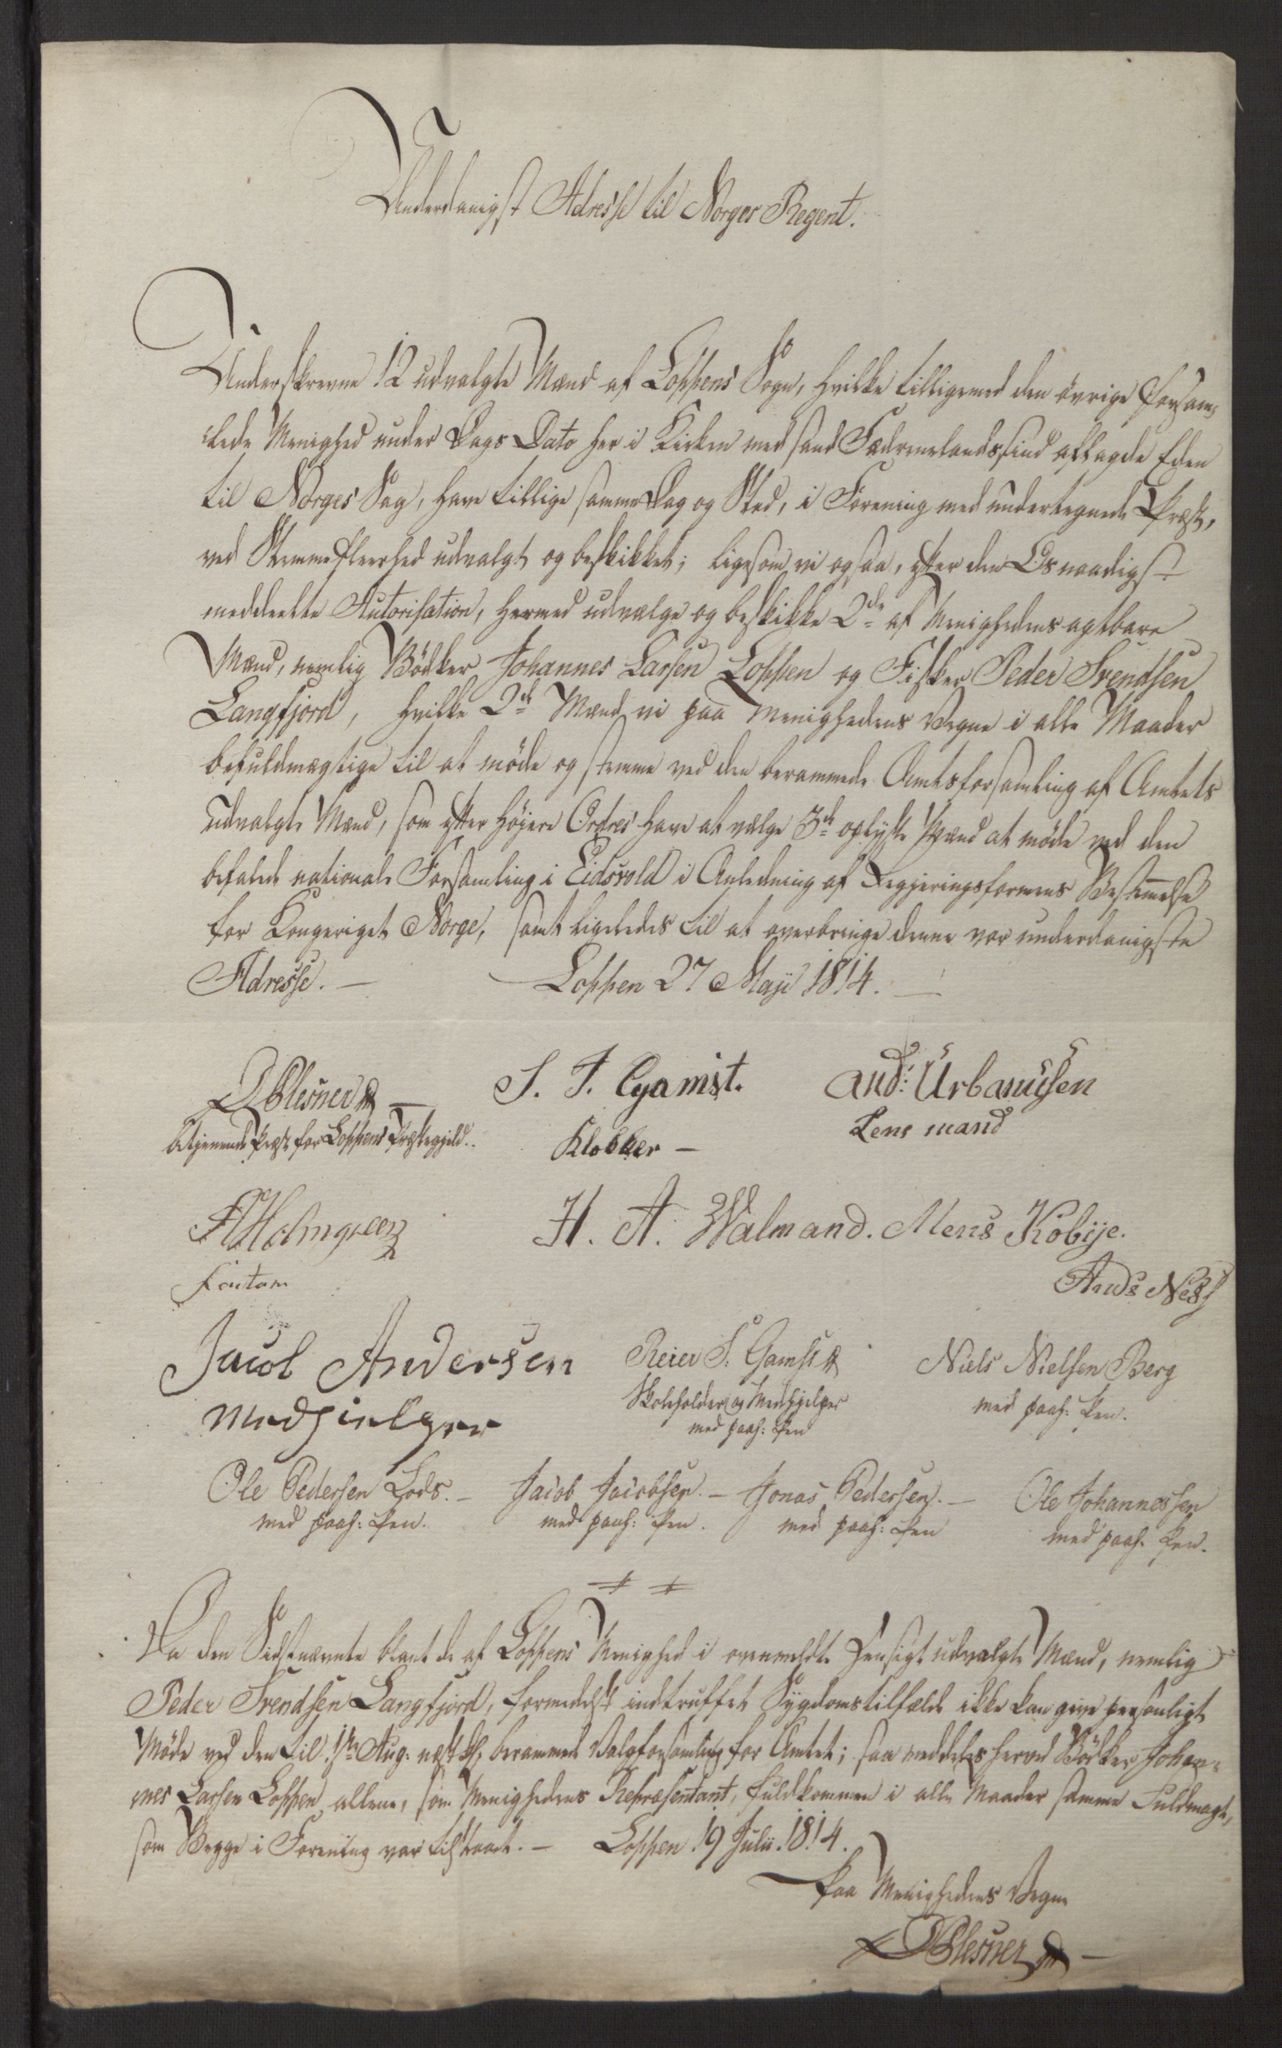 Underdanigst Adresse til Norges Regent.
Underskrevne 12 udvalgte Mænd af Loppens Sogn, hvilke tilligemed den övrige forsam-
lede Menighed under Dags Dato her i Kirken med sand Fædrenelandssind aflagde Eden
til Norges Sag, have tillige samme Dag og Sted, i Forening med undertegnede Præst,
ved Stemmefleerhed udvalgt og beskikket; ligesom vi ogsaa, efter den Os naadigst
meddeelte Autorisation, hermed udvælge og beskikke 2de af Menighedens agtbare
Mænd, nemlig Bödker Johannes Larsen Loppen og Fisker Peder Svendsen
Langfjord, hvilke 2de Mænd vi paa Menighedens Vegne i alle Maader
befuldmægtige til at möde og stemme ved den berammede Amtsforsamling af Amtets
udvalgte Mænd, som efter höjere Ordres have at vælge 3de oplyste Mænd at möde ved den
befalede nationale Forsamling i Eidsvold i Anledning af Regjeringsformens Bestemmelse
for Kongeriget Norge, samt ligeledes til at overbringe denne vor underdanigste
Adresse. — Loppen 27 Maji 1814. —
Blesner — S. J. Gamst. And: Urbanusen
betjenende Præst for Loppens Præstegjeld. Klokker — Lens mand
Holmgreen H. A. Walmand. Mens Kobije.
Ands Ness
Jacob Andersen Reier S. Gamst Niels Nielsen Berg
Medhielper Skoleholder og Medhjelper med paah: Pen.
med paah: Pen
Ole Pedersen Lods. — Jacob Jacobsen. — Jonas Pedersen. — Ole Johannessen
med paah: Pen. med paah: Pen. med paah: Pen med paah. Pen.
Da den Sidstnævnte blant de af Loppens Menighed i ovenmeldte Hensigt udvalgte Mænd, nemlig
Peder Svendsen Langfjord, formedelst indtruffet Sygdomstilfælde ikke kan give personligt
Möde ved den til 1ste Aug: næstk: berammede Valgforsamling for Amtet; saa meddeles herved Bödker Johan-
nes Larsen Loppen allene, som Menighedens Repræsentant, fuldkommen i alle Maader samme Fuldmagt,
som Begge i Forening var tilstaaet. — Loppen 19 Julii 1814.
Paa Menighedens Vegne
Blesner —